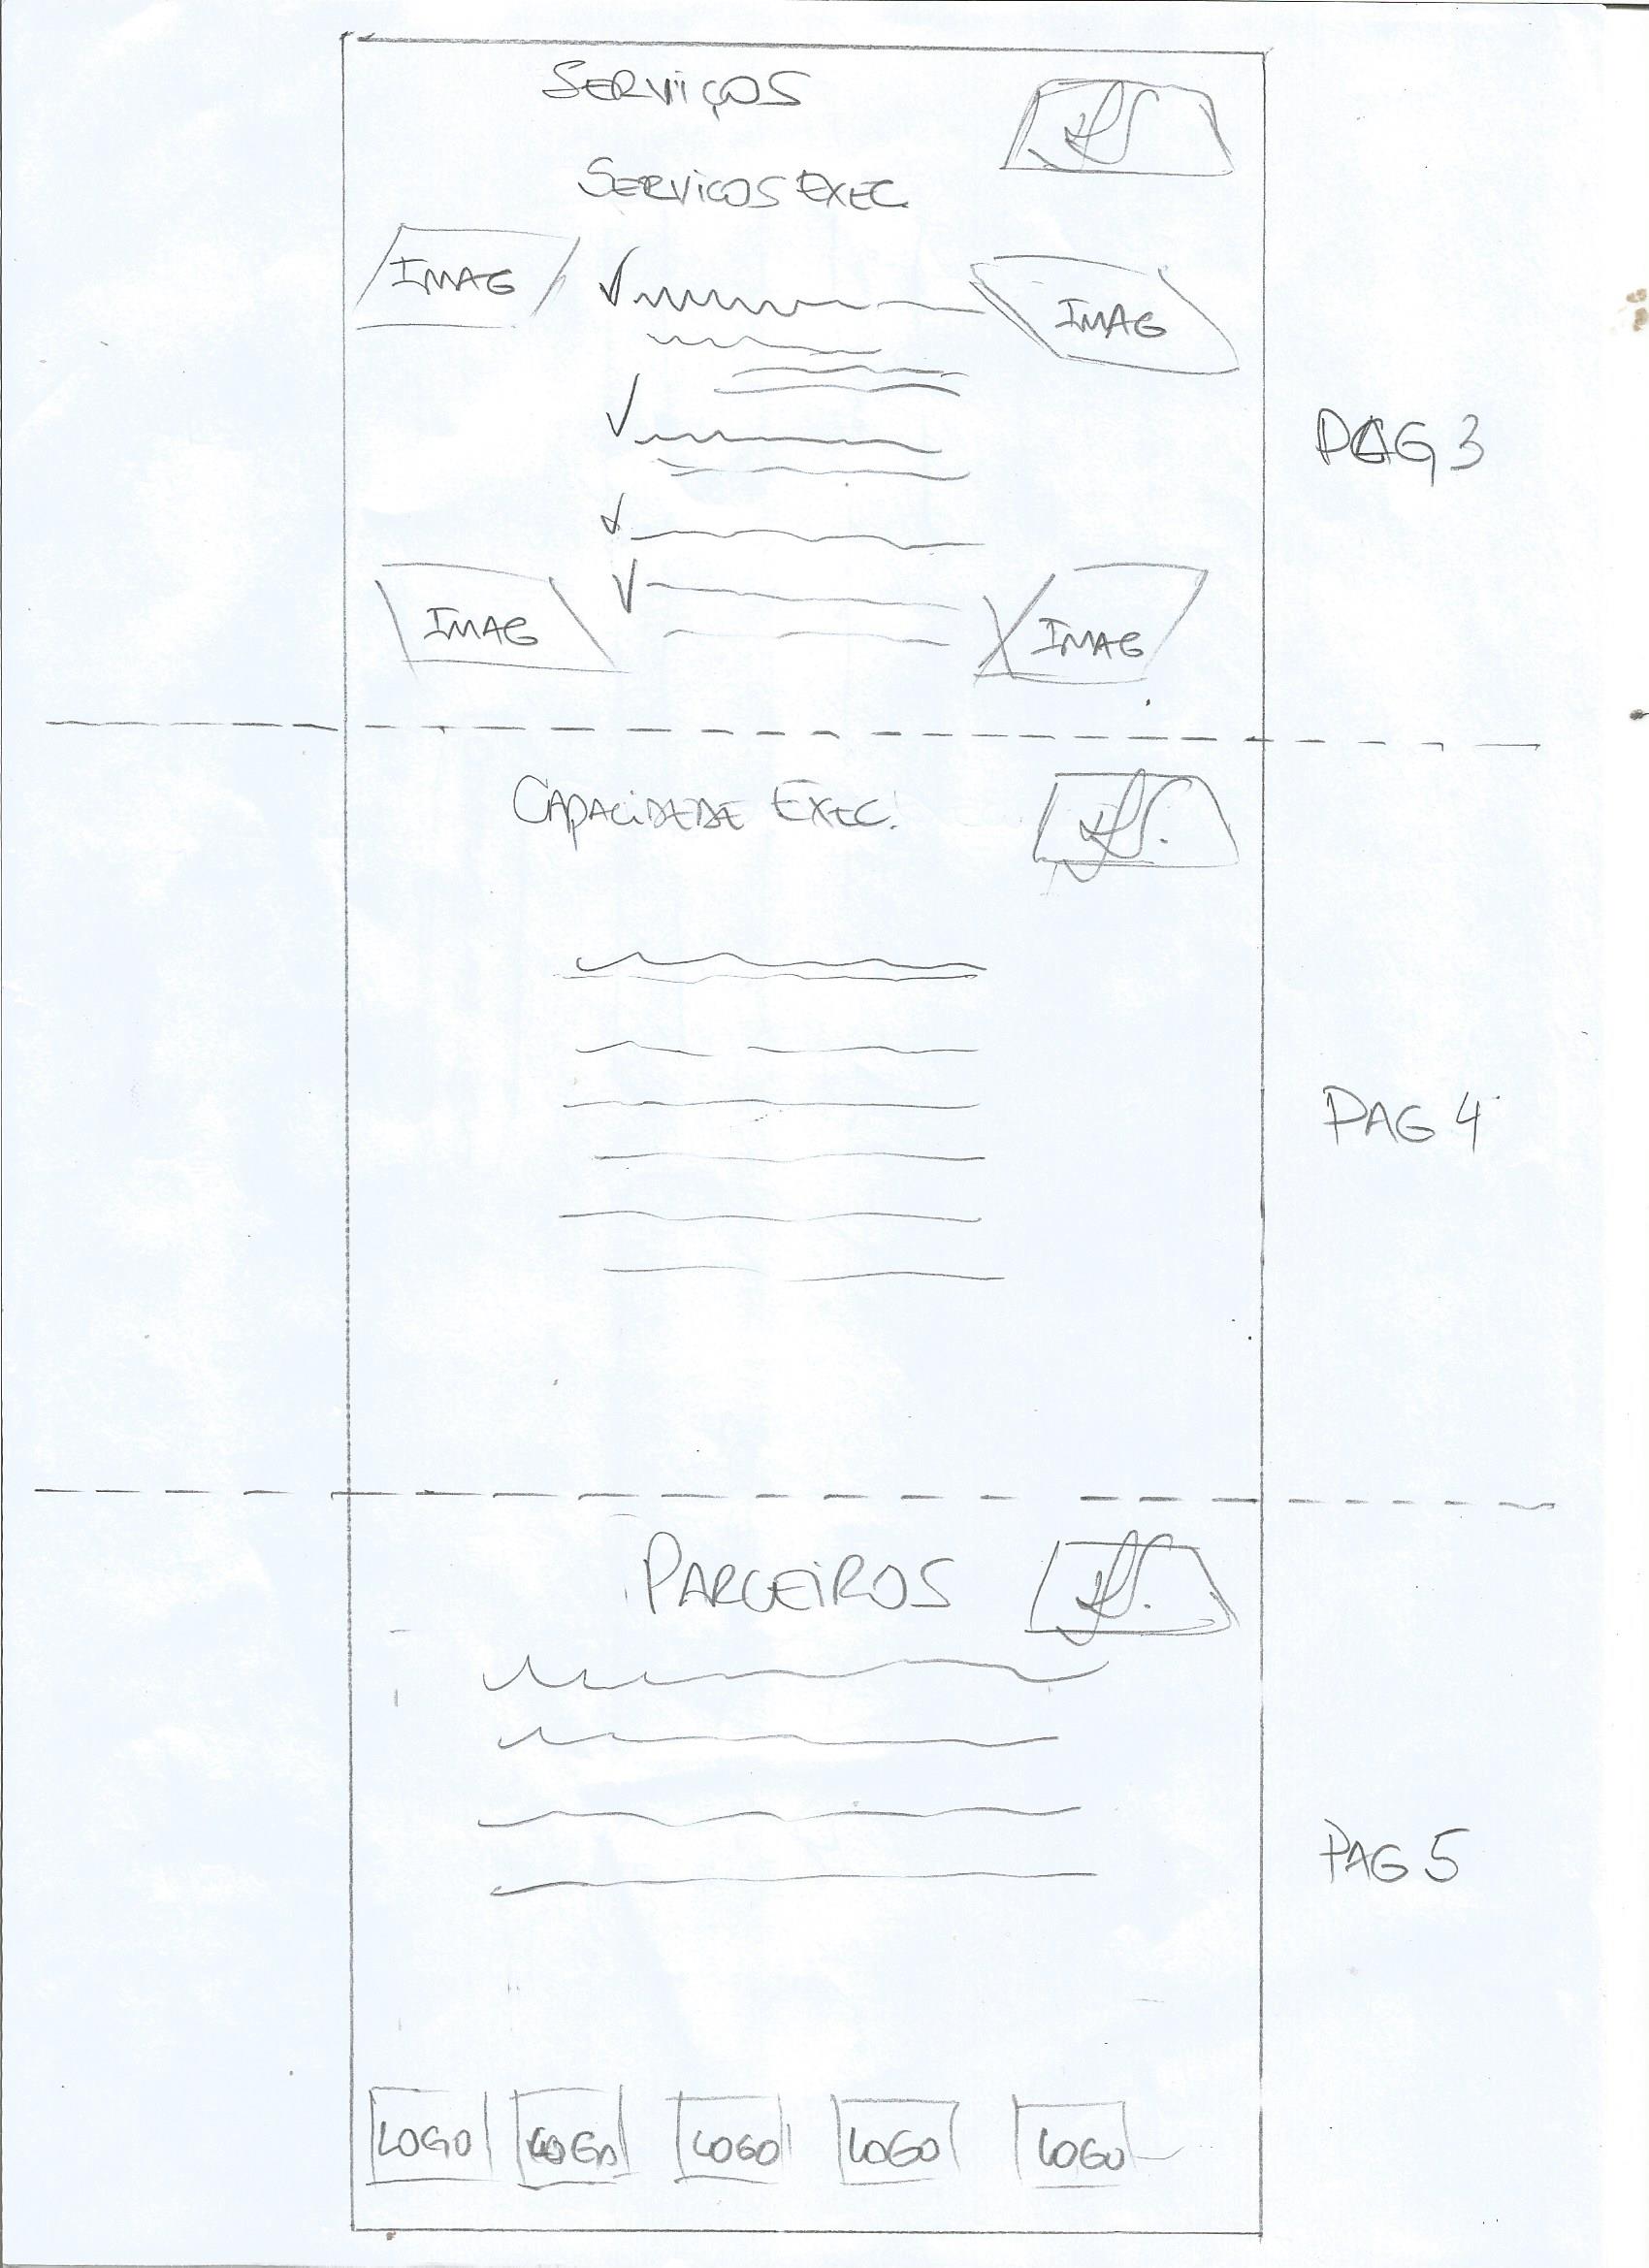 SERVIÇOS
SERVICOS EXEC.
IMAG
IMAG
PAG 3
IMAG
IMAG
CAPACIDADE EXEC.
PAG 4
PARCEIROS
PAG 5
LOGO
LOGO
LOGO
LOGO
LOGO